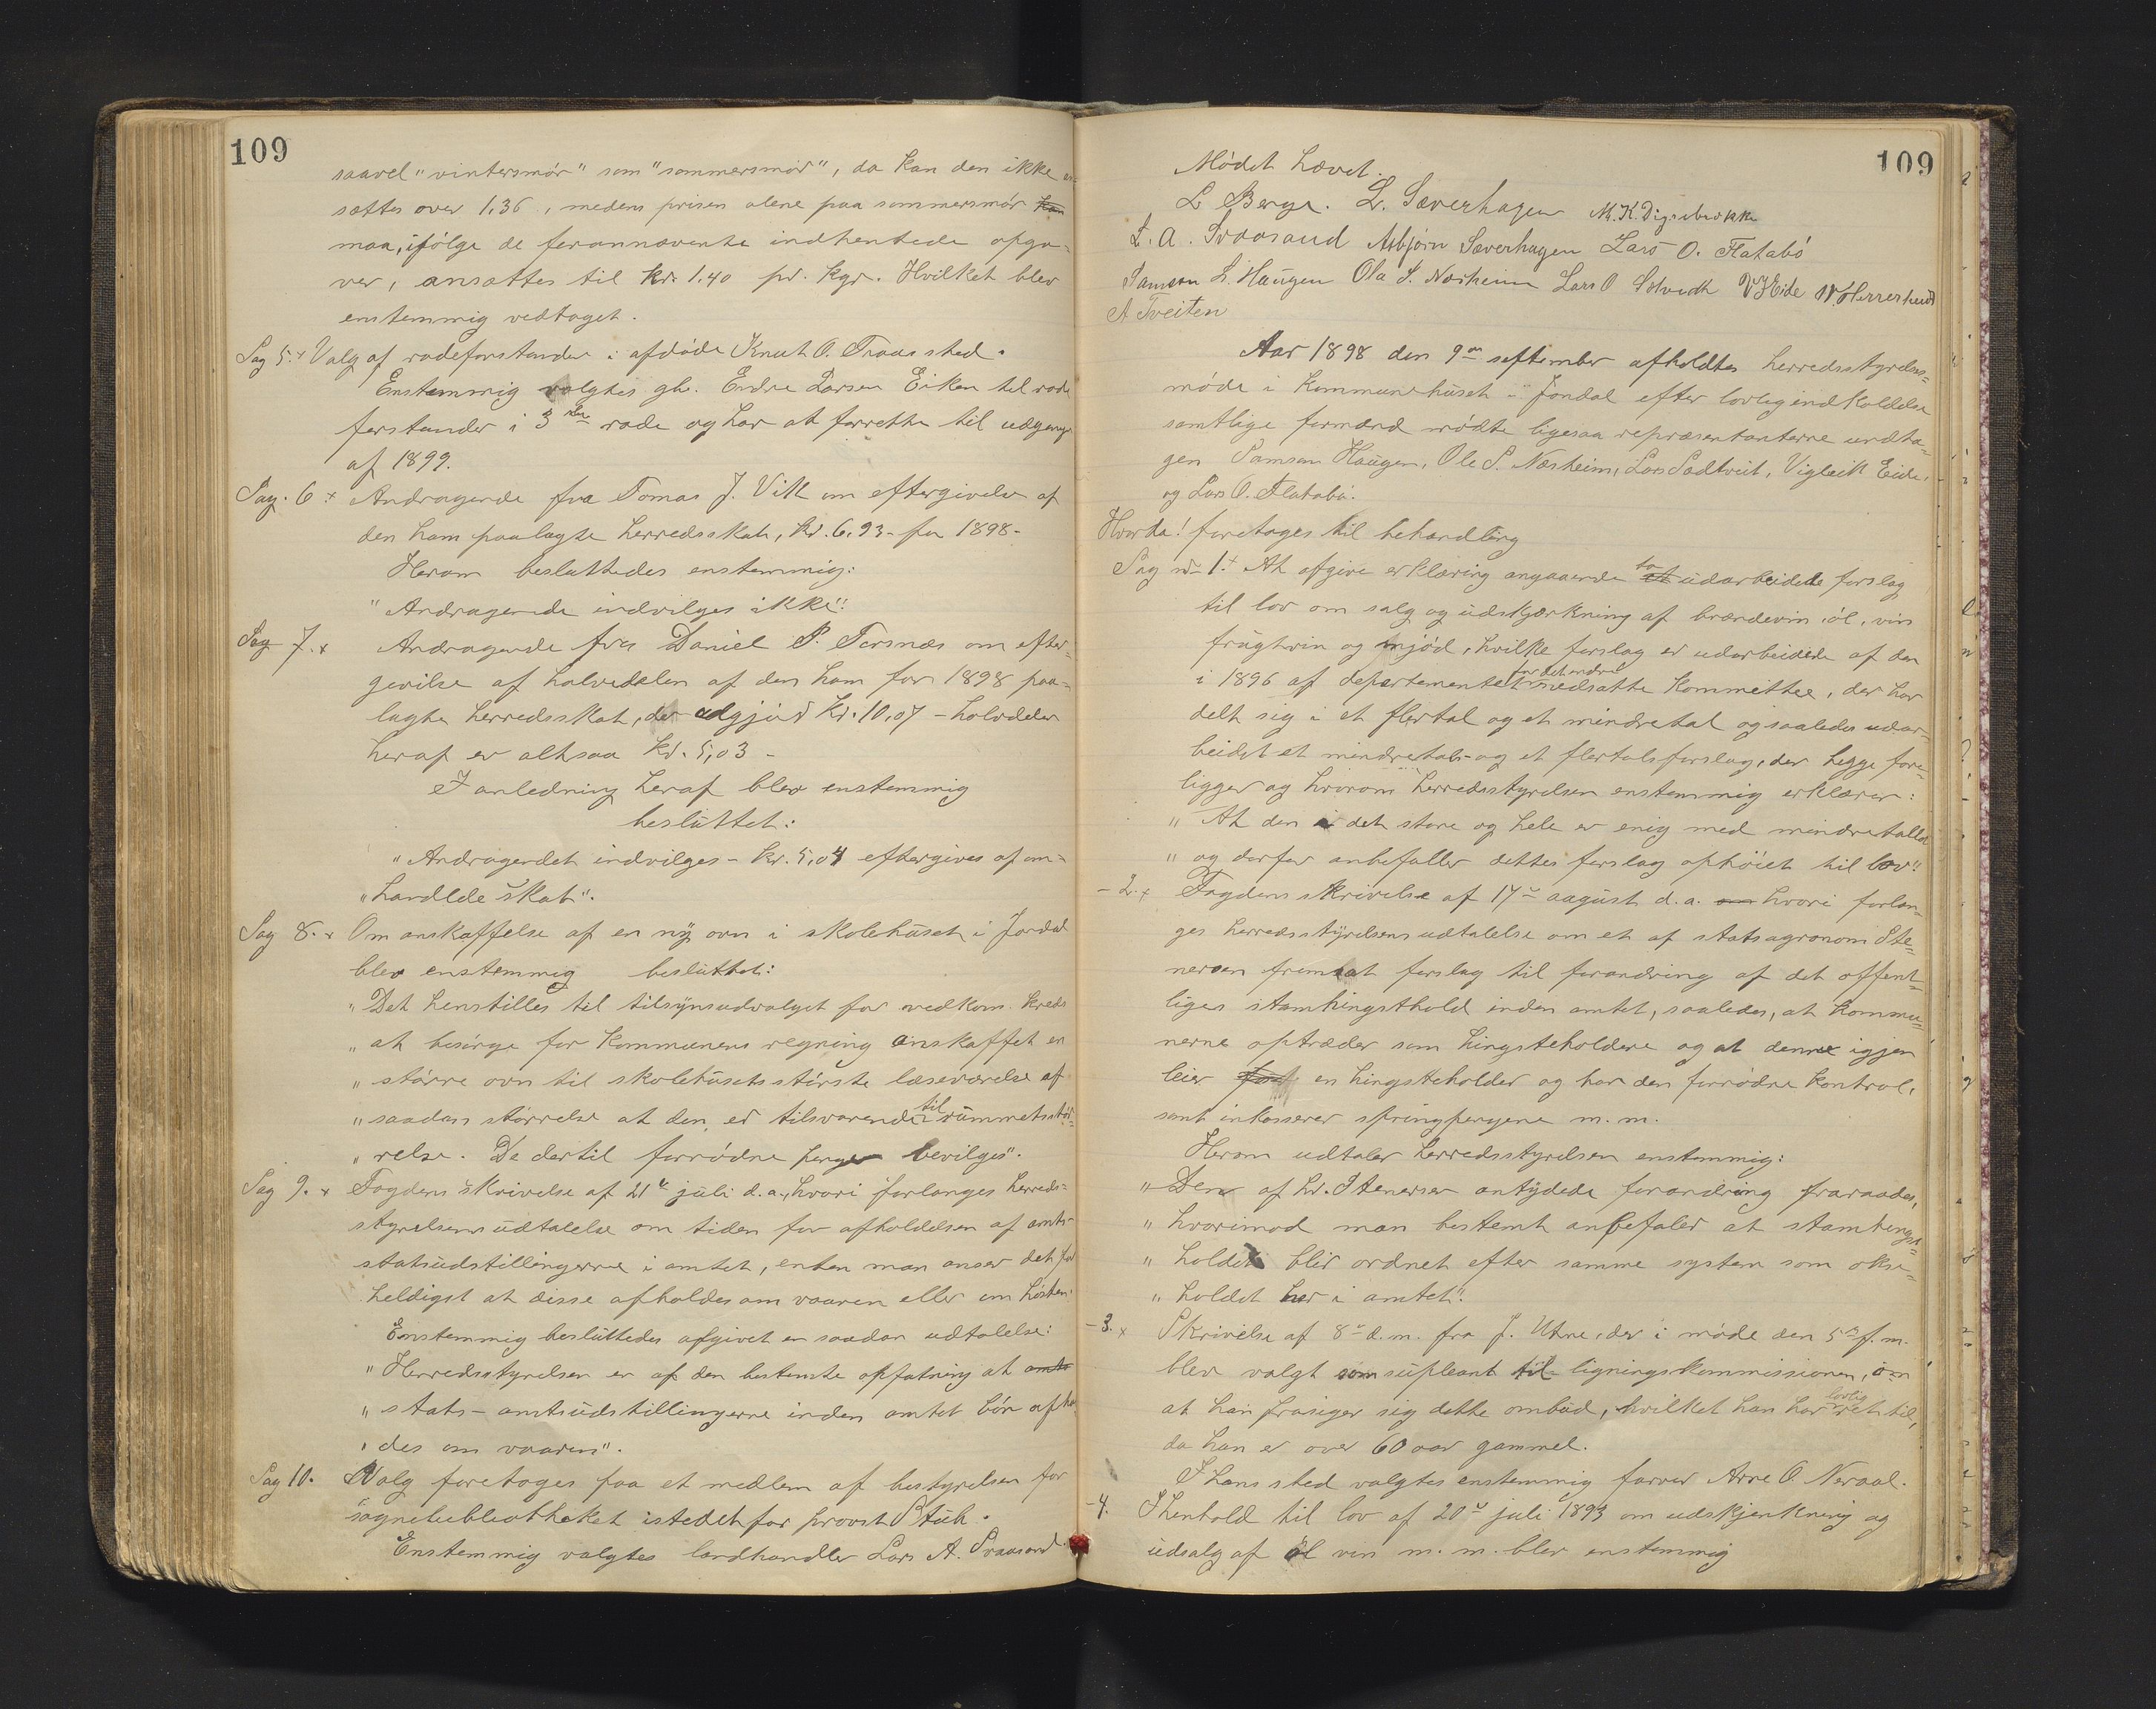 109
saavel "vintersmör" som "sommersmör", da kan den ikke an-
sættes over 1.36, medens prisen alene paa sommersmör kan
maa, ifölge de ferannævnte indhentede opga-
ver, ansættes til kr. 1.40 pr. kgr. Hvilket blev
enstemmig vedtaget.
Sag 5.+ Valg af rodeforstander i afdöde Knut O. Traas sted.
Enstemmig valgtes gb. Endre Larsen Eiken til rode
forstander i 3die rode og har at forrette til udgang
af 1899.
Sag. 6 + Andragende fra Tomas J. Vik om eftergivelse af
den ham paalagte herredsskat, kr. 6,93 - for 1898 -
Herom besluttedes enstemmig:
"Andragende indvilges ikke".
Sag 7. x Andragende fra Daniel P. Torsnæs om efter-
givelse af halvedelen af den ham for 1898 paa-
lagte herredsskat, der udgjör kr. 10,07 - halvdelen
heraf er altsaa kr. 5,03 -
I anledning heraf blev enstemmig
besluttet:
"Andragendet indvilges - kr. 5,04 eftergives af om-
"handlede skat".
Sag 8. x Om anskaffelse af en ny ovn i skolehuset i Jondal
blev enstemmig besluttet:
"Det henstilles til tilsynsudvalget for vedkom. kreds
" at besörge for kommunens regning anskaffet en
" större ovn til skolehusets störste læseværelse af
" saadan störrelse at den er tilsvarende til rummets stör-
" relse. De dertil fornödne penge bevilges".
Sag 9. x Fogdens skrivelse af 21de juli d.a., hvori forlanges herreds-
styrelsens udtalelse om tiden for afholdelsen af amts-
statsudstillingerne i amtet, enten man anser det for
heldigst at disse afholdes om vaaren eller om hösten.
Enstemmig besluttedes afgivet en saadan udtalelse:
"Herredsstyrelsen er af den bestemte opfatning at amts
" stats - amtsudstillingerne inden amtet bör afhol-
" des om vaaren".
Sag 10. Valg foretoges paa et medlem af bestyrelsen for
sognebibliotheket istedet for provst Stub.
Enstemmig valgtes landhandler Lars A. Svaasand.
109
Mödet hævet.
L Berge. L. Sæverhagen M. K. Digrebrekke
L. A. Svaasand Asbjörn Sæverhagen Lars O. Flatabö
Samson L. Haugen Ola S. Næsheim Lars O Solvedt V J Eide N Herreheid
A Tveiten
Aar 1898 den 9de september afholdtes herredsstyrelses-
möde i kommunehuset i Jondal efter lovlig indkaldelse
samtlige formænd mödte ligesaa repræsentanterne undta-
gen Samson Haugen, Ole S. Næsheim, Lars Sædtveit, Vigleik Eide,
og Lars O. Flatabö.
Hvorda! foretoges til behandling
Sag no 1.+ At afgive erklæring angaaende et to udarbeidede forslag
til lov om salg og udskjænkning af brændevin, öl, vin
frugtvin og mjöd, hvilke forslag er udarbeidede af den
i 1896 af departementet for det indre nedsatte kommittee, der har
delt sig i et flertal og et mindretal og saaledes udar-
beidet et mindretals- og et flertalsforslag, der begge fore-
ligger og hvorom herredsstyrelsen enstemmig erklærer:
" At den i det store og hele er enig med mindretallet
" og derfor anbefaller dettes forslag ophöiet til lov".
- 2. x Fogdens skrivelse af 17de august d.a. om hvori forlan-
ges herredsstyrelsens udtalelse om et af statsagronom Ste-
nersen fremsat forslag til forandring af det offent-
liges stamhingsthold inden amtet, saaledes, at kommu-
nerne optræder som hingsteholdere og at denne igjen
leier en hingsteholder og har den fornödne kontrol,
samt inkasserer springpengene m. m.
Herom udtaler herredsstyrelsen enstemmig:
"Den af hr. Stenersen antydede forandring fraraades,
" hvorimod man bestemt anbefaler at stamhingst-
" holdet blir ordnet efter samme system som okse-
" holdet her i amtet".
- 3. x Skrivelse af 8de d.m. fra J. Utne, der i möde den 5te f.m.
blev valgt som supleant til ligningskommissionen, om
at han frasiger sig dette ombud, hvilket han har lovlig ret til,
da han er over 60 aar gammel.
I hans sted valgtes enstemmig farver Arne O. Neraal.
- 4. I henhold til lov af 20de juli 1893 om udskjenkning og
udsalg af öl vin m. m. blev enstemmig